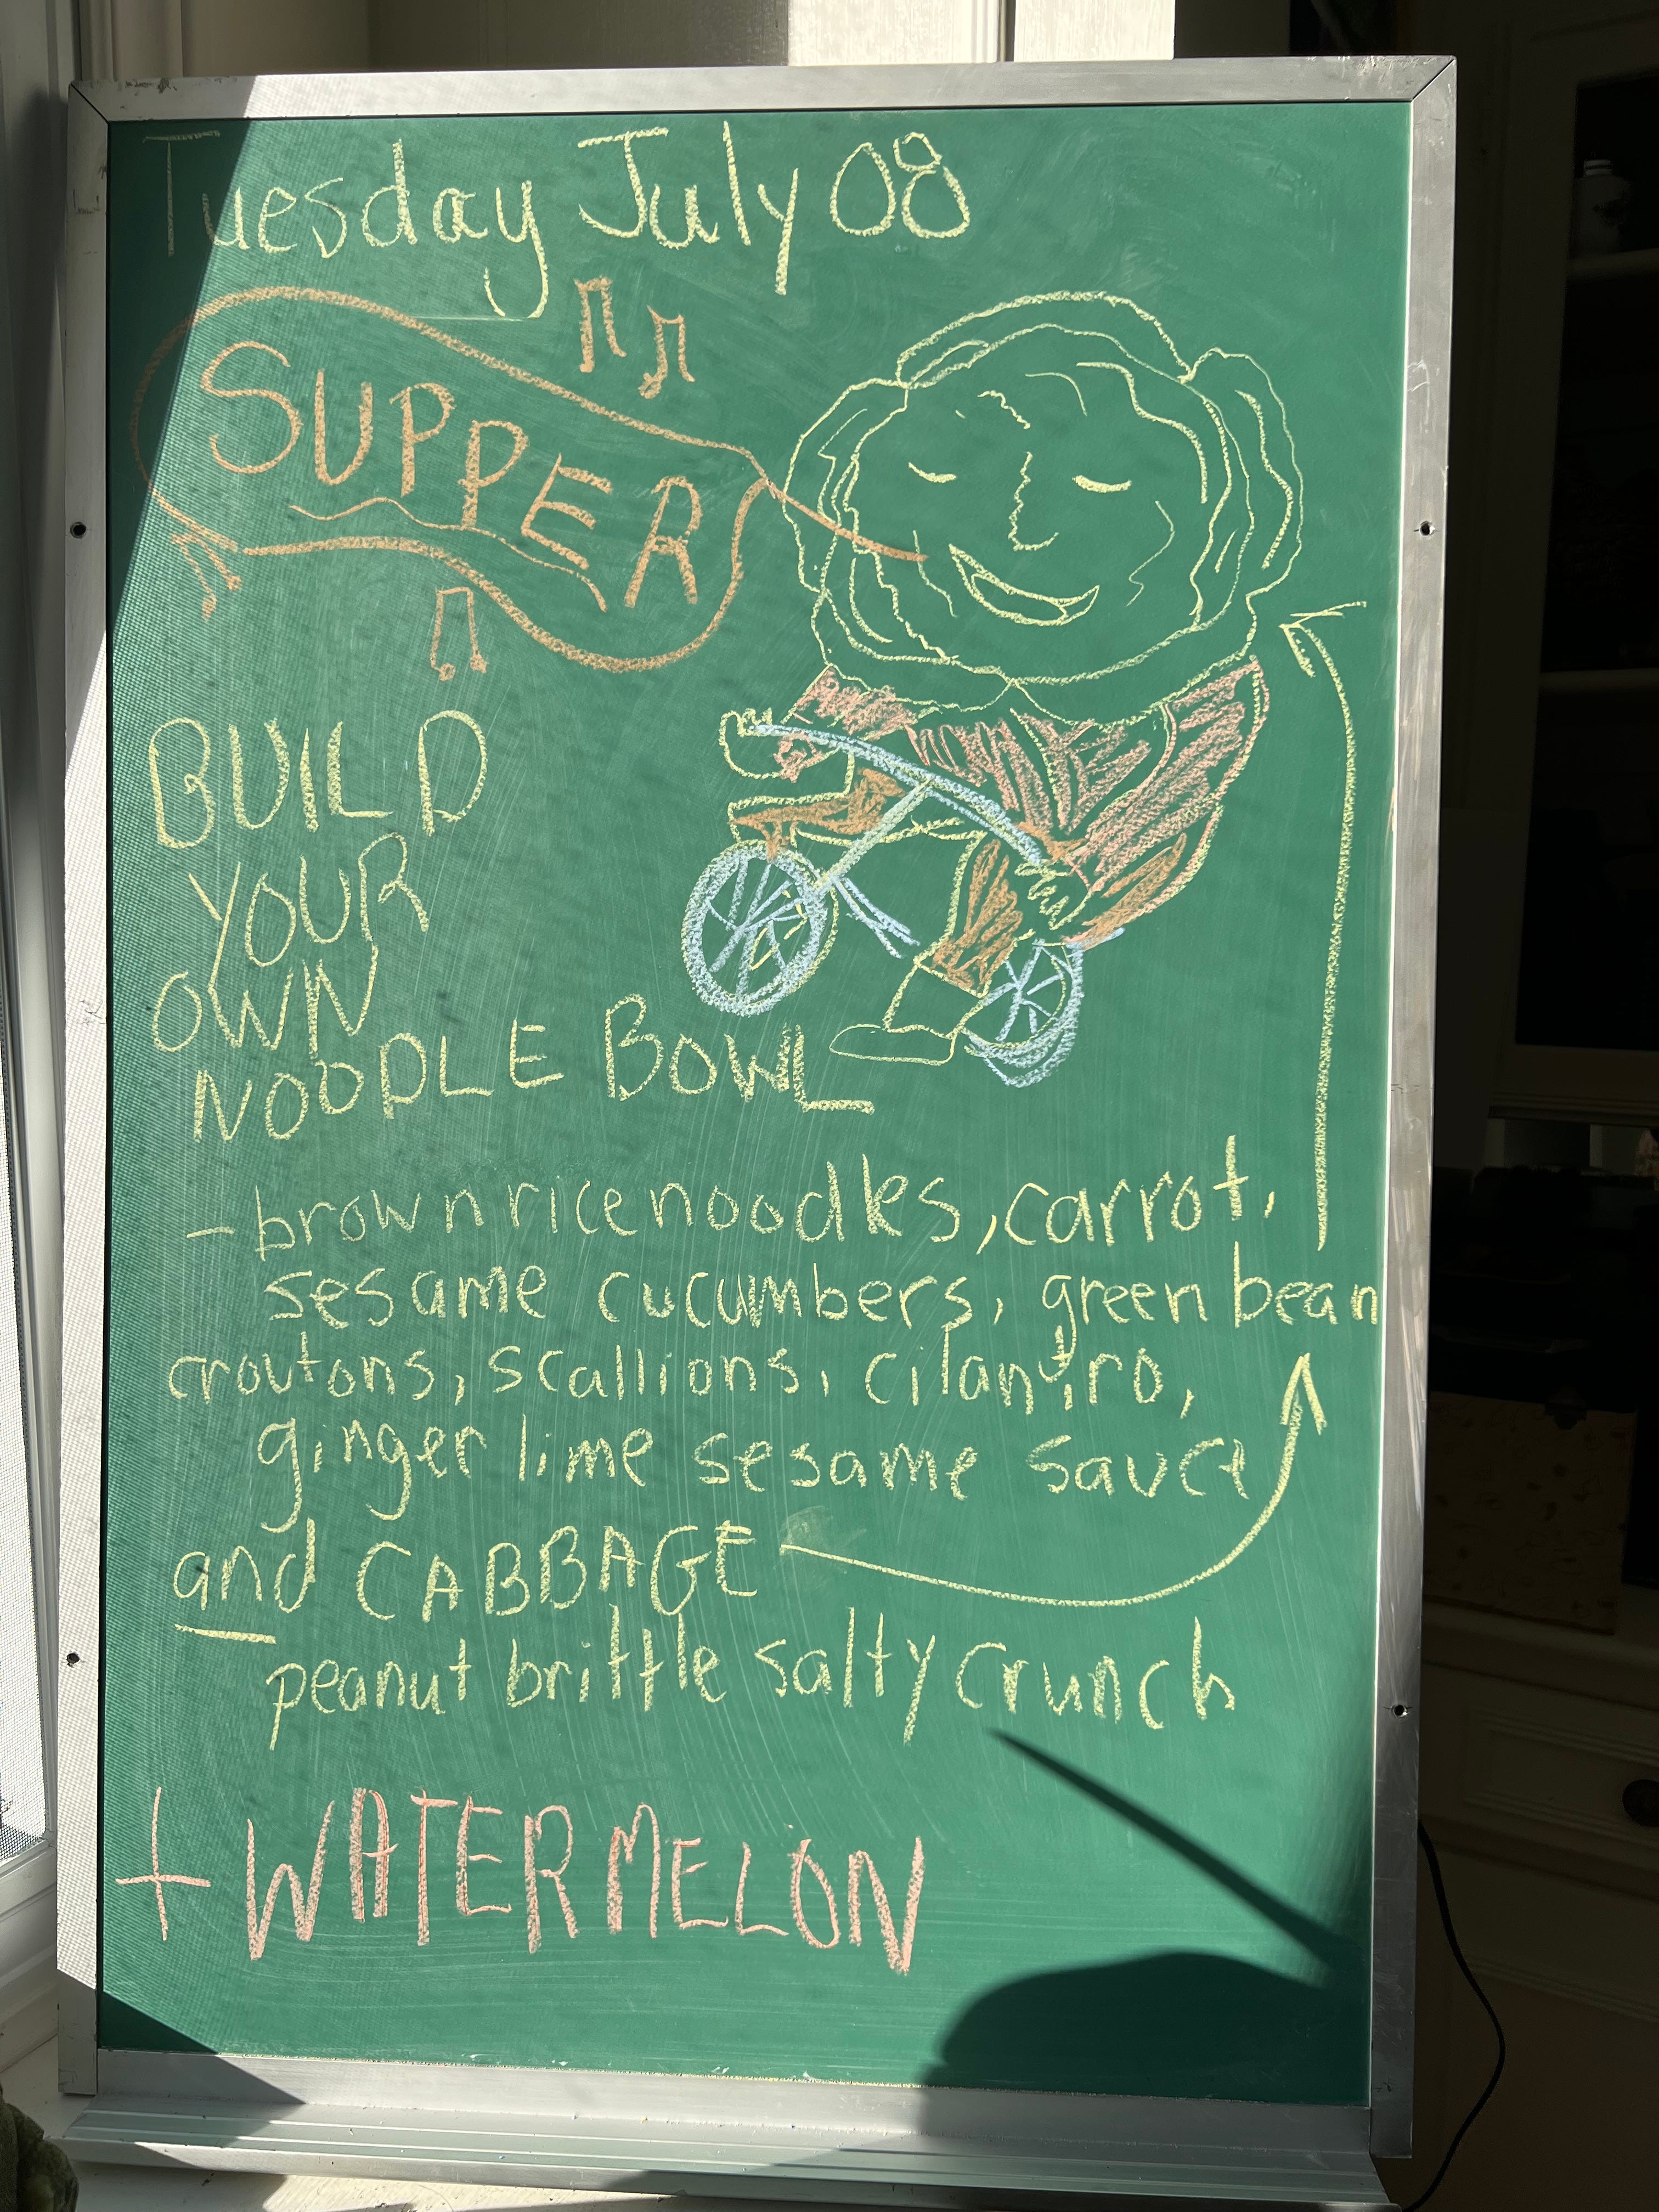 Tuesday July 08
SUPPER
BUILD
YOUR
OWN
NOODLE BOWL
- brown rice noodles, carrot,
sesame cucumbers, green bean
croutons, scallions, cilantro,
ginger lime sesame sauce
and CABBAGE
peanut brittle salty crunch
+ WATERMELON